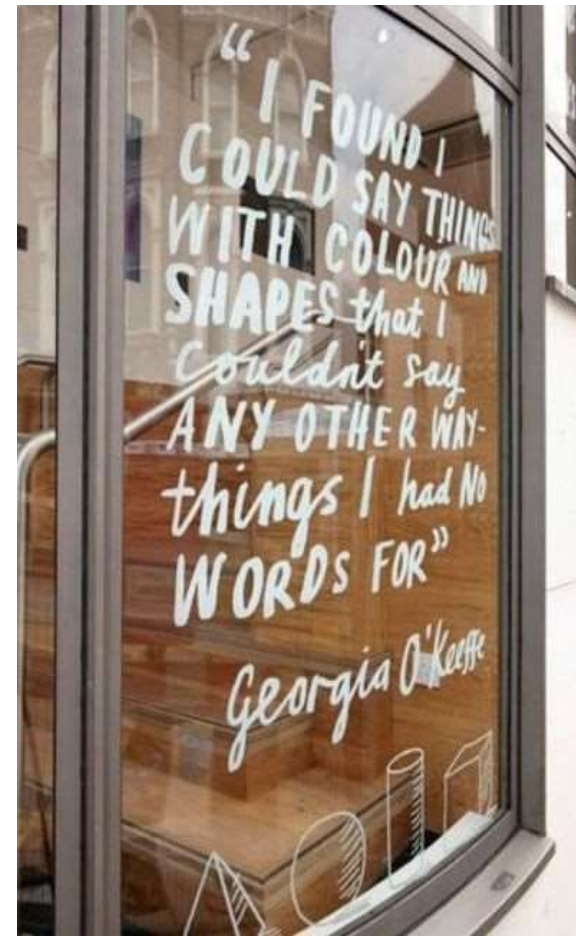 “I FOUND I
COULD SAY THINGS
WITH COLOUR AND
SHAPES that I
couldn't say
ANY OTHER WAY-
things I had No
WORDS FOR”
Georgia O'Keeffe